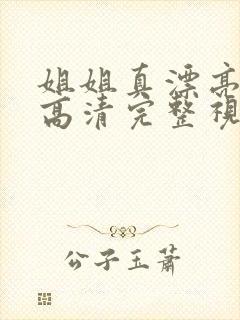 姐姐真漂亮
高清完整視
公子玉蕭